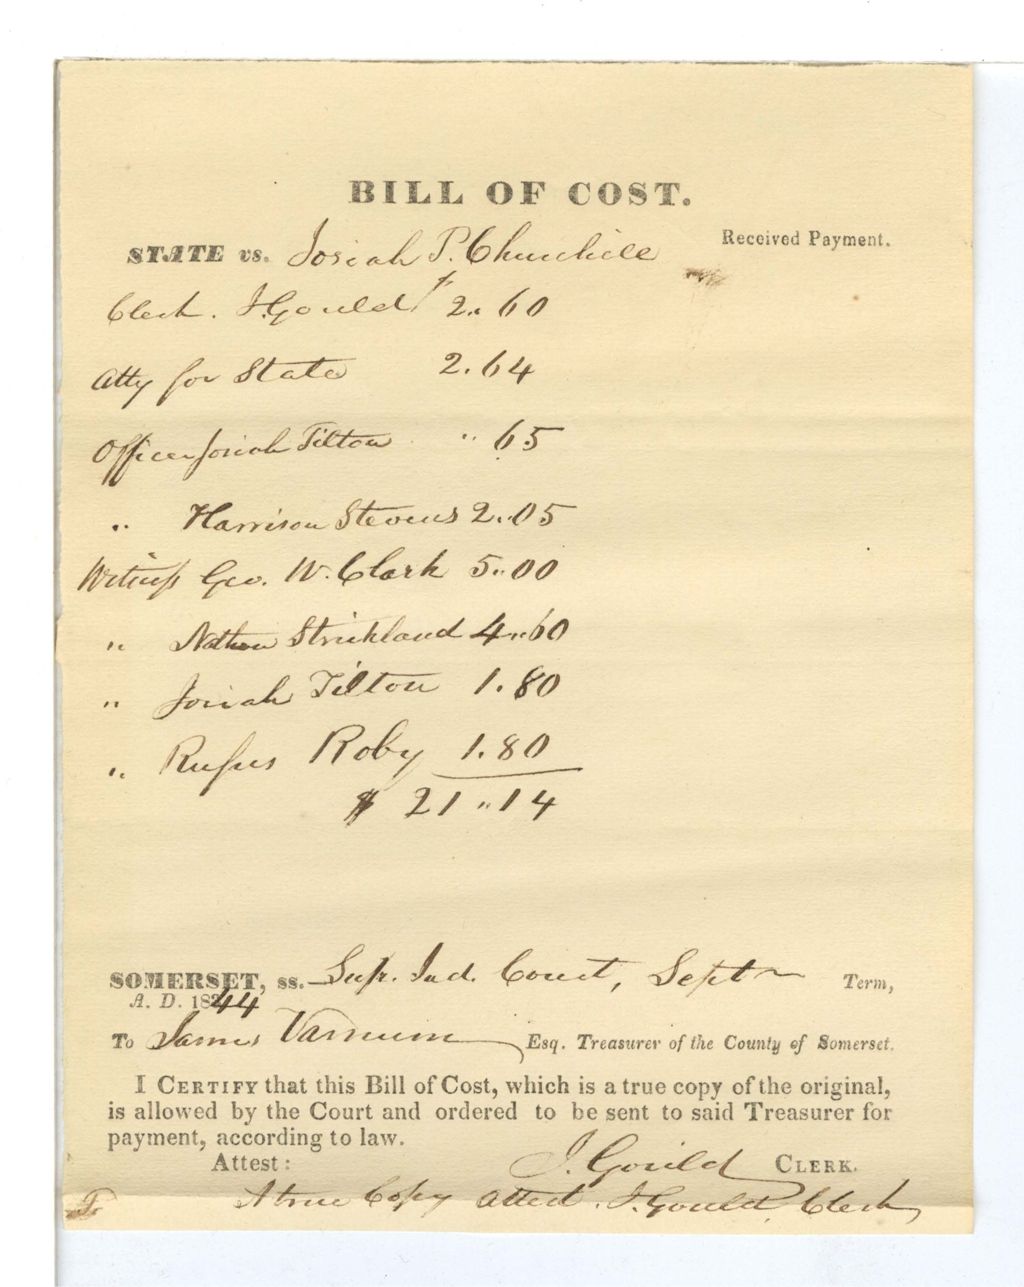 BILL OF COST.
STATE vs. Josiah P. Churchill
Received Payment.
Clerk. J. Gould $ 2.60
Atty for State 2.64
Officer Josiah Tilton " 65
" Harrison Stevens 2.05
Witness Geo. W. Clark 5.00
" Nathan Strickland 4.60
" Josiah Tilton 1.80
" Rufus Roby 1.80
$ 21.14
SOMERSET, ss. Sup. Jud. Court, Sept Term,
A. D. 1844
To James Varnum Esq. Treasurer of the County of Somerset.
I CERTIFY that this Bill of Cost, which is a true copy of the original,
is allowed by the Court and ordered to be sent to said Treasurer for
payment, according to law.
Attest: J. Gould CLERK.
A true Copy Attest. J. Gould, Clerk